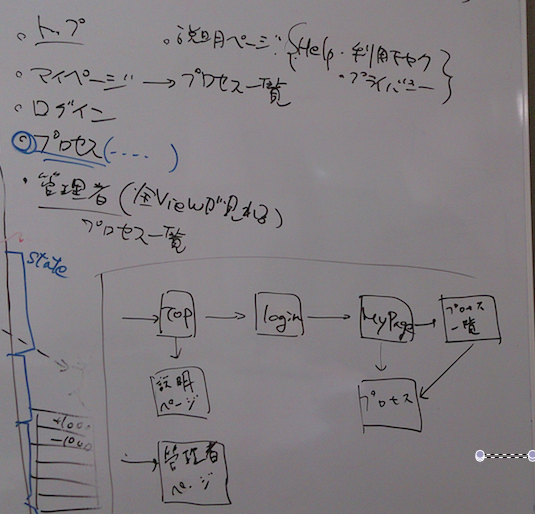 トップ
説明ページ (Help・利用キヤク
・プライバシー)
マイページ → プロセス一覧
ログイン
プロセス(・・・・)
管理者 (全Viewが見れる)
プロセス一覧
state
→ Top → login → MyPage → プロセス一覧
説明ページ
プロセス
管理者ページ
+1000
-1000